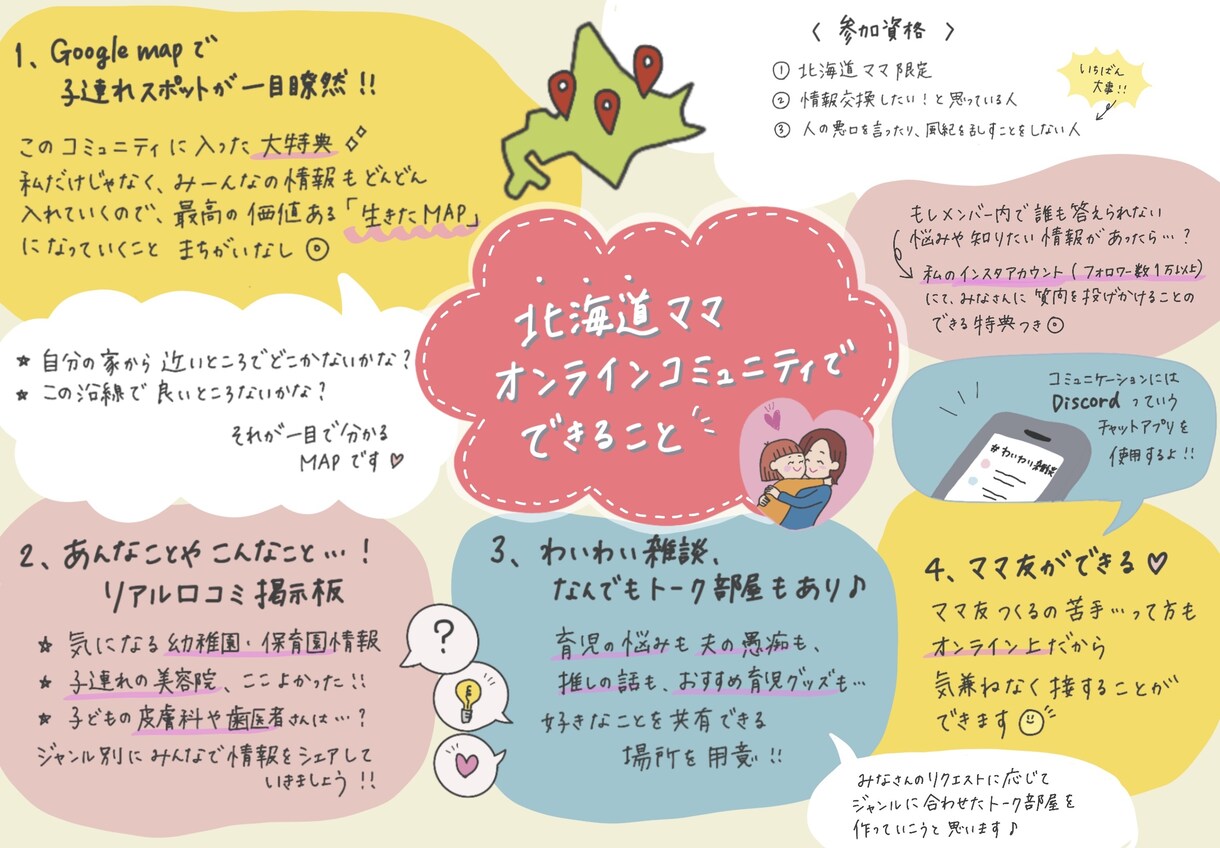 北海道ママ
オンラインコミュニティで
できること
1、Google mapで
子連れスポットが一目瞭然!!
このコミュニティに入った大特典
私だけじゃなく、みーんなの情報もどんどん
入れていくので、最高の価値ある「生きたMAP」
になっていくこと まちがいなし◎
★ 自分の家から近いところでどこかないかな?
★ この沿線で良いところないかな?
それが一目で分かる
MAPです♡
〈 参加資格 〉
① 北海道ママ限定
② 情報交換したい!と思っている人
③ 人の悪口を言ったり、風紀を乱すことをしない人
いちばん
大事!!
もしメンバー内で誰も答えられない
悩みや知りたい情報があったら…?
私のインスタアカウント(フォロワー数1万以上)
にて、みなさんに質問を投げかけることの
できる特典つき◎
コミュニケーションには
Discordっていう
チャットアプリを
使用するよ!!
#わいわい雑談
2、あんなことやこんなこと…!
リアル口コミ掲示板
★ 気になる幼稚園・保育園情報
★ 子連れの美容院、ここよかった!!
★ 子どもの皮膚科や歯医者さんは…?
ジャンル別にみんなで情報をシェアして
いきましょう!!
?
3、わいわい雑談、
なんでもトーク部屋もあり♪
育児の悩みも夫の愚痴も、
推しの話も、おすすめ育児グッズも…
好きなことを共有できる
場所を用意!!
4、ママ友ができる♡
ママ友つくるの苦手…って方も
オンライン上だから
気兼ねなく接することが
できます
みなさんのリクエストに応じて
ジャンルに合わせたトーク部屋を
作っていこうと思います♪